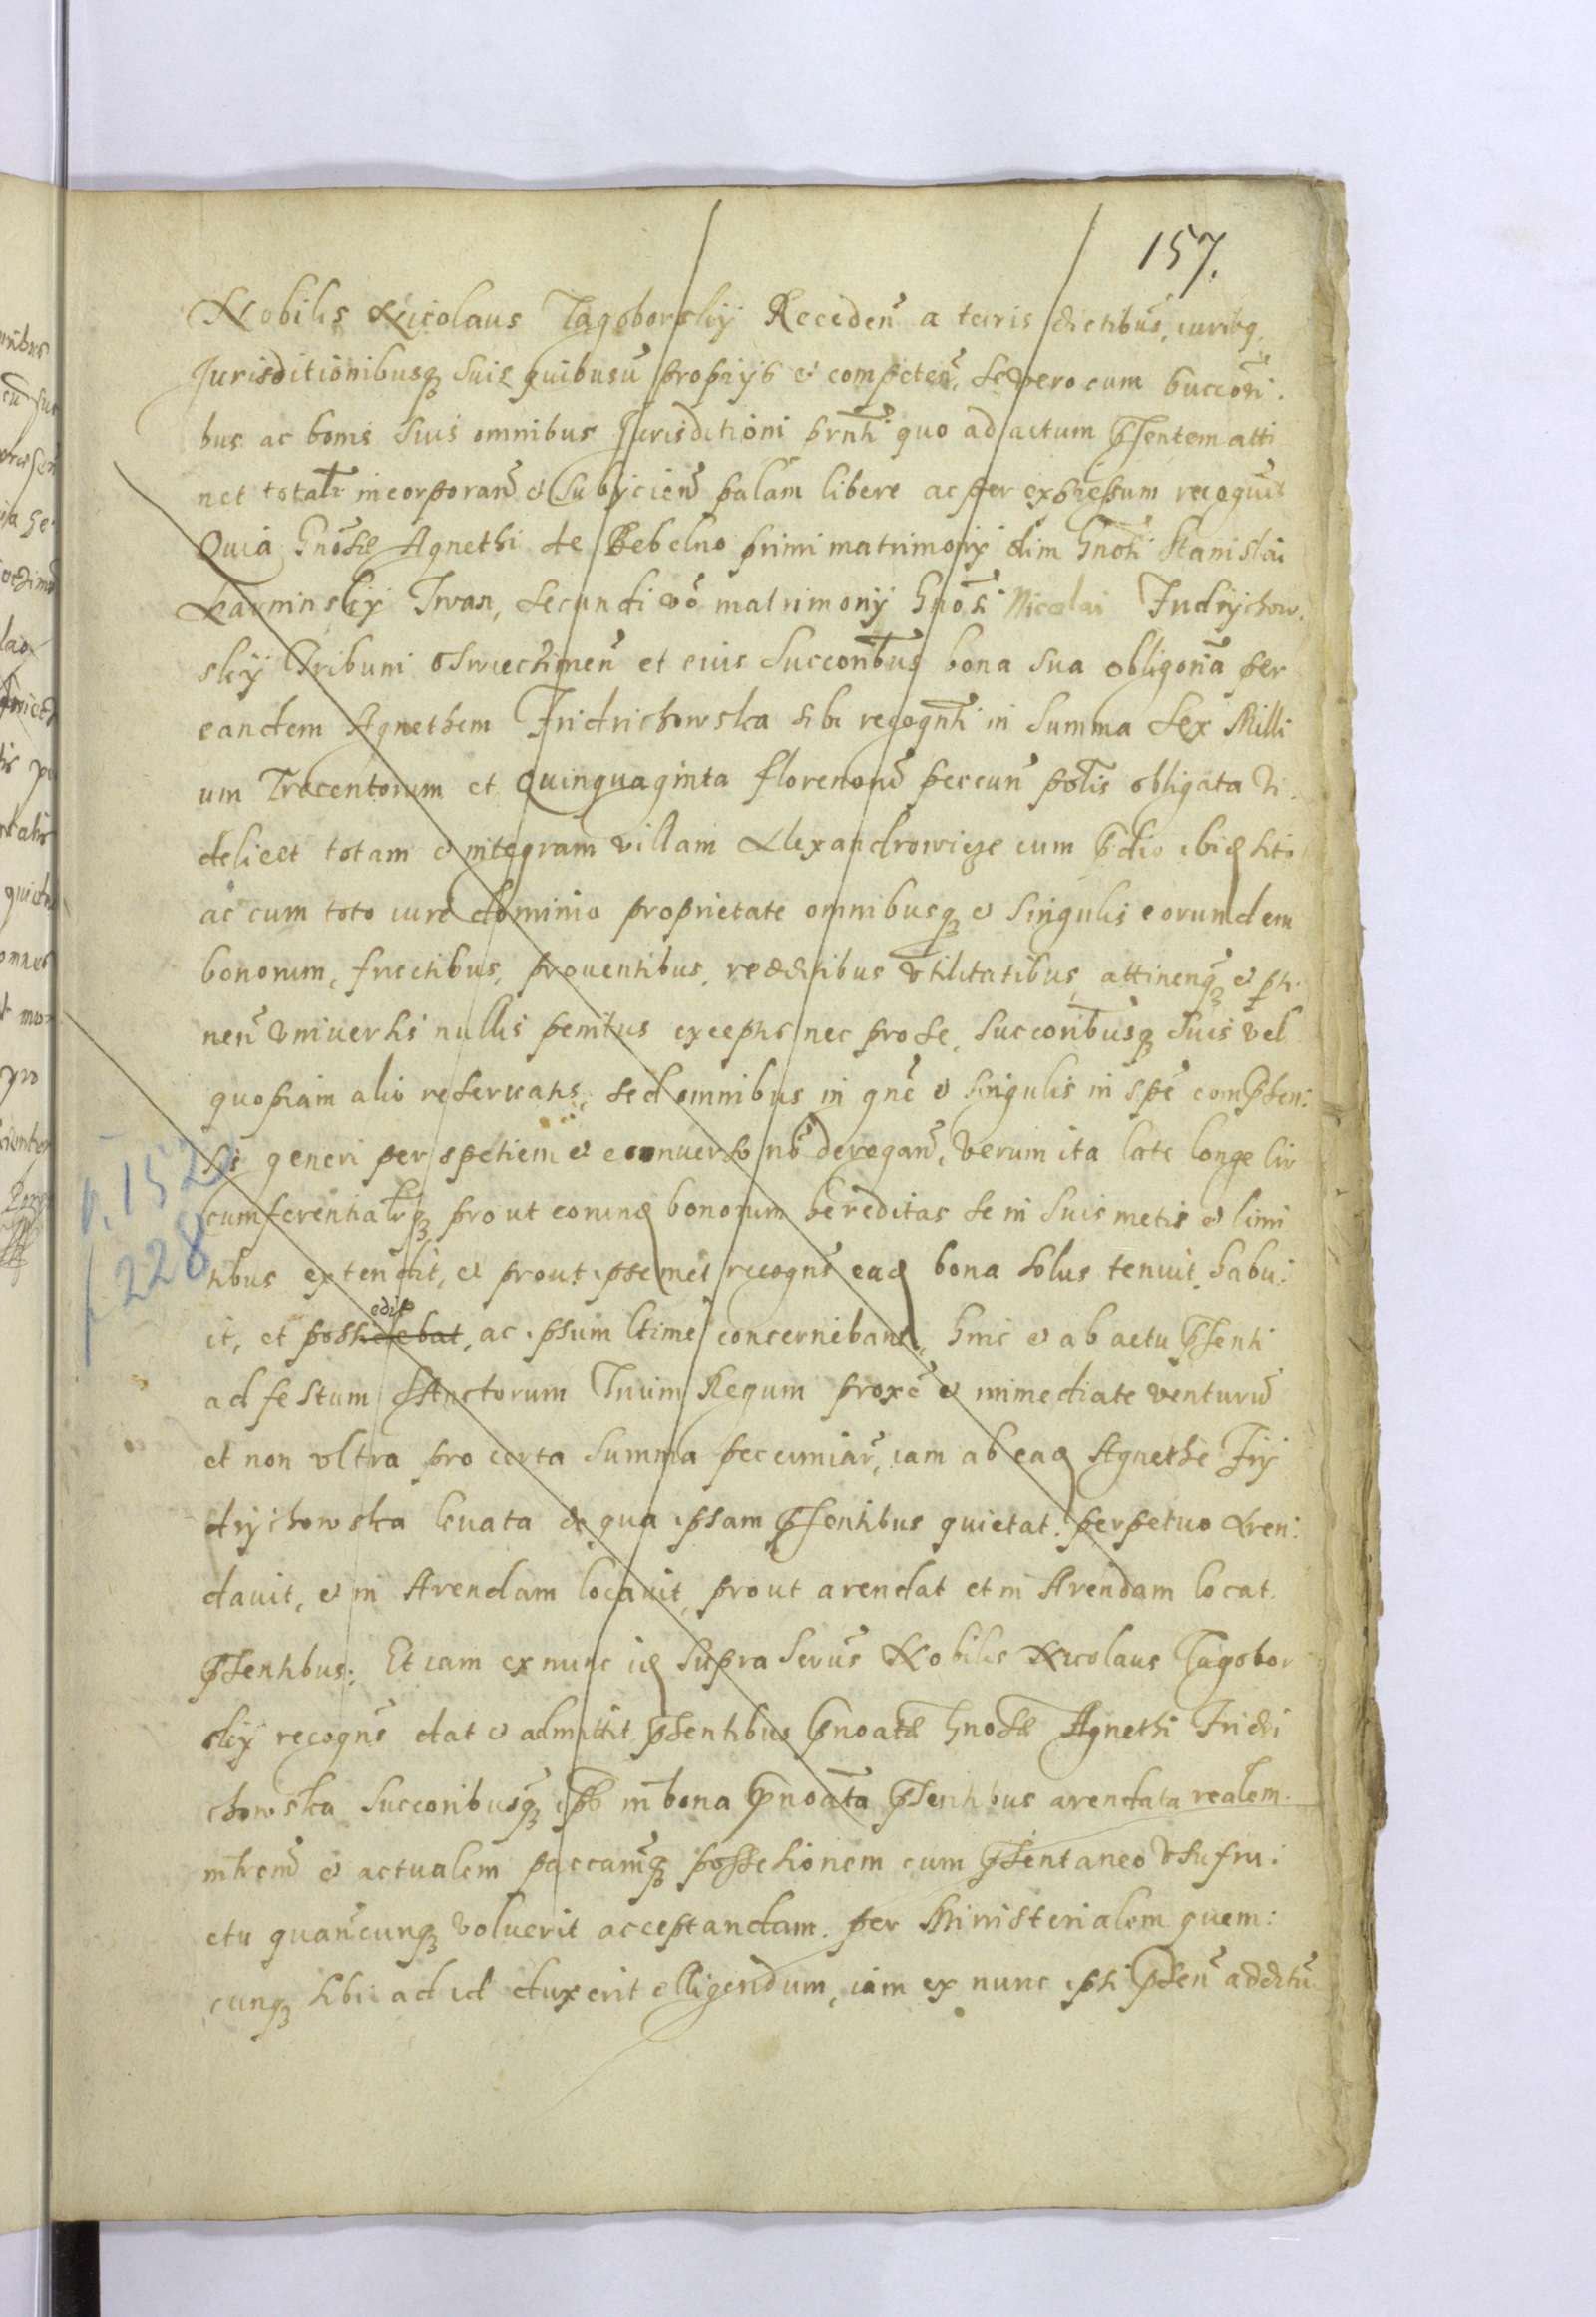 157.
Nobilis Nicolaus Jagoborskij Recedeñ a teris dictibus, iuribq
Jurisditionibusq suis quibusuis proprijs et competeñ, se vero cum succori:
bus ac bonis suis omnibus Jurisditioni prnti quo ad actum pnsentem atti
net totalr incorporañ et subijcieñ palam libere ac per expressum recognuit
Quia Gnosæ Agnethi de Bebelno primi matrimonij olim Gnosi Stanislai
Karminskij Iwan, secundi vo matrimonij Gnosi Nicolai Fridrychow.
skij Tribuni Oswiecimeñ et eius succoribus bona sua obligoria per
eandem Agnethem Fridrichowska sibi recognti in summa sex Milli
um Trecentorum et Quinquaginta florenorū peccun polis obligata vi.
delicet totam et integram villam Alexandrowice cum pdio ibid sito
ac cum toto iure dominio proprietate omnibusq et singulis eorundem
bonorum, fructibus, prouentibus, redditibus vtilitatibus, attinenq et pti
neñ vniuersis nullis penitus exceptis nec pro se, succoribusq suis vel
quopiam alio reseruatis, sed omnibus in gne et singulis in spe compsen:
sis generi per spetiem et econuerso no derogañ, verum ita late longe cir
cumferentialrq prout eorund bonorum hereditas se in suis metis et limi
tibus extendit, et prout ipsemet recogns ead bona solus tenuit habu:
it, et possidebat edit, ac ipsum ltime concernebant, hinc et ab actu pnsenti
ad festum Sanctorum Trium Regum proxe et immediate venturū
et non vltra pro certa summa peccuniar, iam ab ead Agnethe Frij
drychowska leuata de qua ipsam pnsentibus quietat perpetuo Aren:
dauit, et in Arendam locauit, prout arendat et in Arendam locat
pnsentibus: Et iam ex nunc id supra scrus Nobilis Nicolaus Jagobor
skij recogns dat et admittit pnsentibus pnoatæ Gnosæ Agnethi Fridri
chowska succoribusq ips in bona pnoata pnsentibus arendata realem
intrem et actualem paccamq possessionem cum pnsentaneo vsufru:
ctu quancunq voluerit acceptandam per Ministerialem quem:
cunq sibi ad id duxerit elligendum, iam ex nunc ipsi pnsen additū
p. 152
f. 228